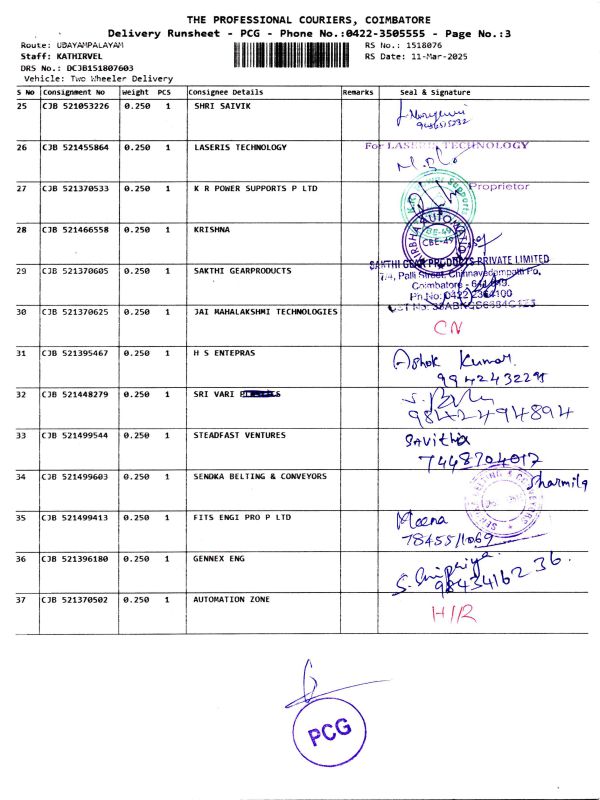 THE PROFESSIONAL COURIERS, COIMBATORE
Delivery Runsheet - PCG - Phone No.:0422-3505555 - Page No.:3
Route: UDAYAMPALAYAM RS No.: 1518076
Staff: KATHIRVEL RS Date: 11-Mar-2025
DRS No.: DCJB151807603
Vehicle: Two Wheeler Delivery
S No Consignment No Weight PCS Consignee Details Remarks Seal & Signature
25 CJB 521053226 0.250 1 SHRI SAIVIK
26 CJB 521455864 0.250 1 LASERIS TECHNOLOGY For LASERIS TECHNOLOGY
Proprietor
27 CJB 521370533 0.250 1 K R POWER SUPPORTS P LTD
28 CJB 521466558 0.250 1 KRISHNA CBE-49
SAKTHI GEAR PRODUCTS PRIVATE LIMITED
29 CJB 521370605 0.250 1 SAKTHI GEARPRODUCTS
Coimbatore - 641 049.
Ph No: 0422 2364100
30 CJB 521370625 0.250 1 JAI MAHALAKSHMI TECHNOLOGIES CN
31 CJB 521395467 0.250 1 H S ENTEPRAS Ashok Kumar
9942432295
32 CJB 521448279 0.250 1 SRI VARI
9842494894
33 CJB 521499544 0.250 1 STEADFAST VENTURES Savitha
7448704017
34 CJB 521499603 0.250 1 SENDKA BELTING & CONVEYORS Sharmila
35 CJB 521499413 0.250 1 FITS ENGI PRO P LTD Meena
7845511069
36 CJB 521396180 0.250 1 GENNEX ENG
9843416236
37 CJB 521370502 0.250 1 AUTOMATION ZONE H/R
PCG